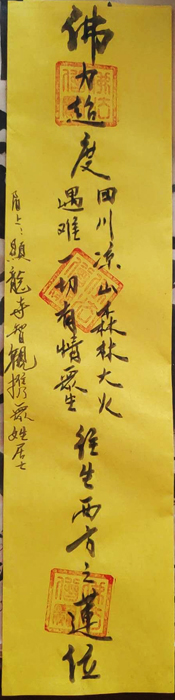 佛力超度
四川凉山森林大火
遇难一切有情眾生
往生西方之蓮位
阳上：顯龍寺智觀携眾姓居士